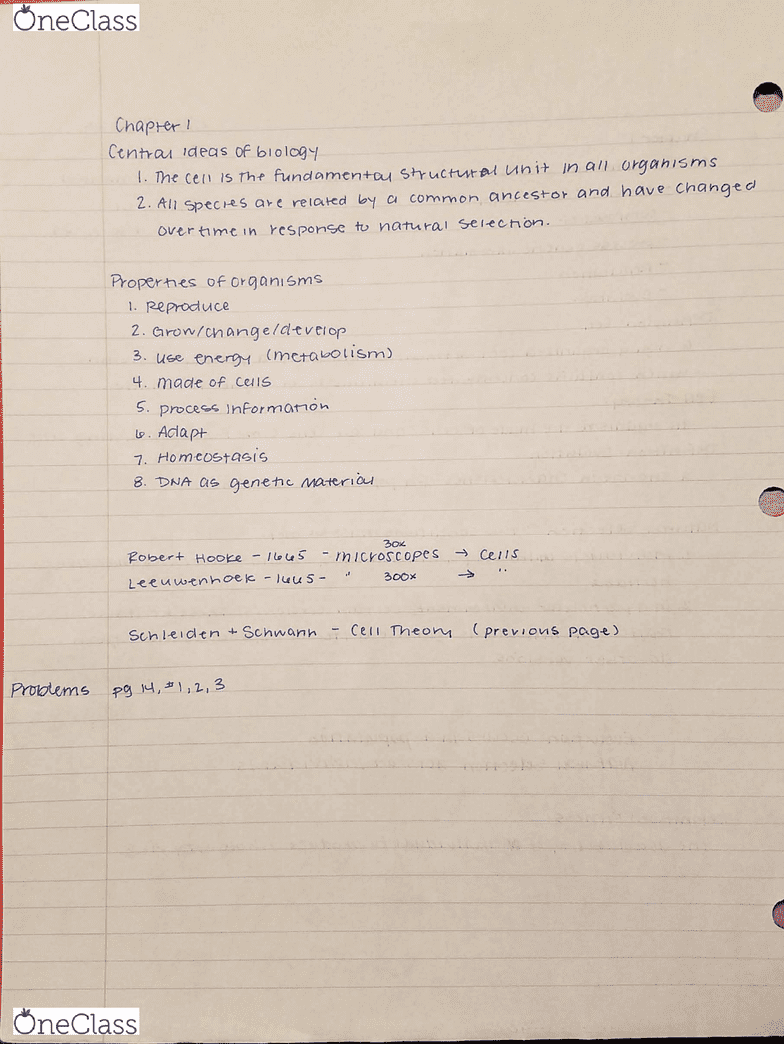 OneClass
Chapter 1
Central ideas of biology
1. The cell is the fundamental structural unit in all organisms
2. All species are related by a common ancestor and have changed
over time in response to natural selection.
Properties of organisms
1. Reproduce
2. Grow/change/develop
3. use energy (metabolism)
4. made of cells
5. process information
6. Adapt
7. Homeostasis
8. DNA as genetic material
30x
Robert Hooke - 1665 - microscopes → cells
Leeuwenhoek - 1665 - " 300x → "
Schleiden + Schwann - Cell Theory (previous page)
Problems pg 14, #1, 2, 3
OneClass